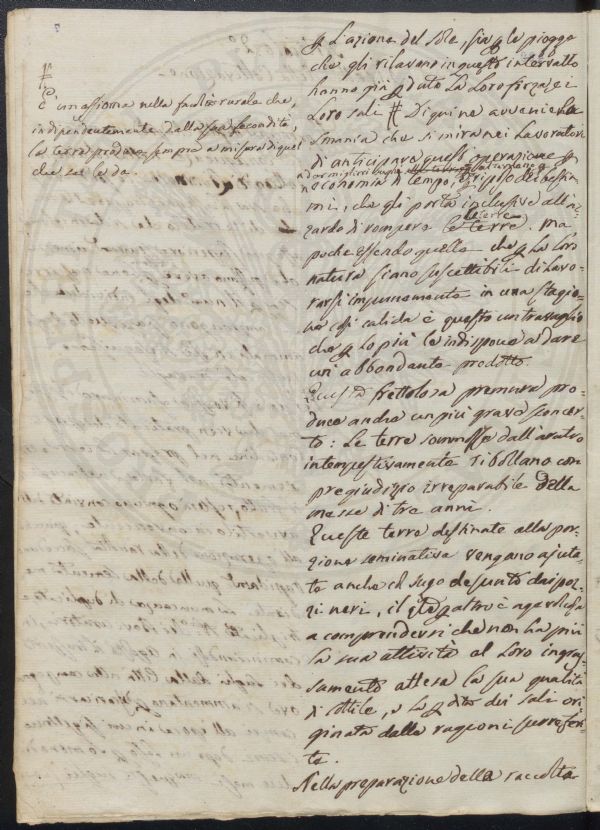 è un assioma nella facoltà rurale che,
indipendentemente dalla sua fecondità,
la terra produce sempre a misura di quel
che se le dà.
ꝑ L'azione del sole, sia ꝑ le piogge
che gli rilavano in questo intervallo
hanno già ꝑduto la Loro forza, e i
Loro sali # Di qui ne avviene La
smania che si mira nei Lavoratori
di anticipare questa operazione ꝑ
economia di tempo, riposo dei bestia-
mi, che gli porta inclusive all'az-
zardo di rompere le terre. Ma
poche essendo quelle che ꝑ La loro
natura siano suscettibili di Lavo-
rarsi impunemente in una stagio-
ne così calida è questo un travaglio
che ꝑ lo più le indispone a dare
un'abbondante prodotto.
Questa frettolosa premura pro-
duce anche un più grave sconcer-
to: Le terre sommosse dall'aratro
intempestivamente ribollano con
pregiudizio irreparabile della
messe di tre anni.
Queste terre destinate alla por-
zione seminativa vengano ajuta-
te anche col sugo desunto dai poz-
zi neri, il quale ꝑ altro è agevolissa
a comprendersi che non ha più
la sua attività al Loro ingras-
samento attesa la sua qualità
di sottile, e la ꝑdita dei sali ori-
ginata dalle ragioni surriferi-
te.
Nella preparazione della raccolta